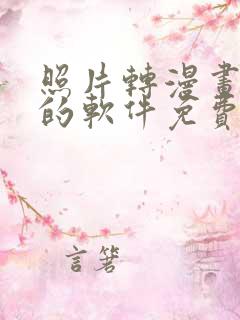 照片轉漫畫
的軟件免費
言箬